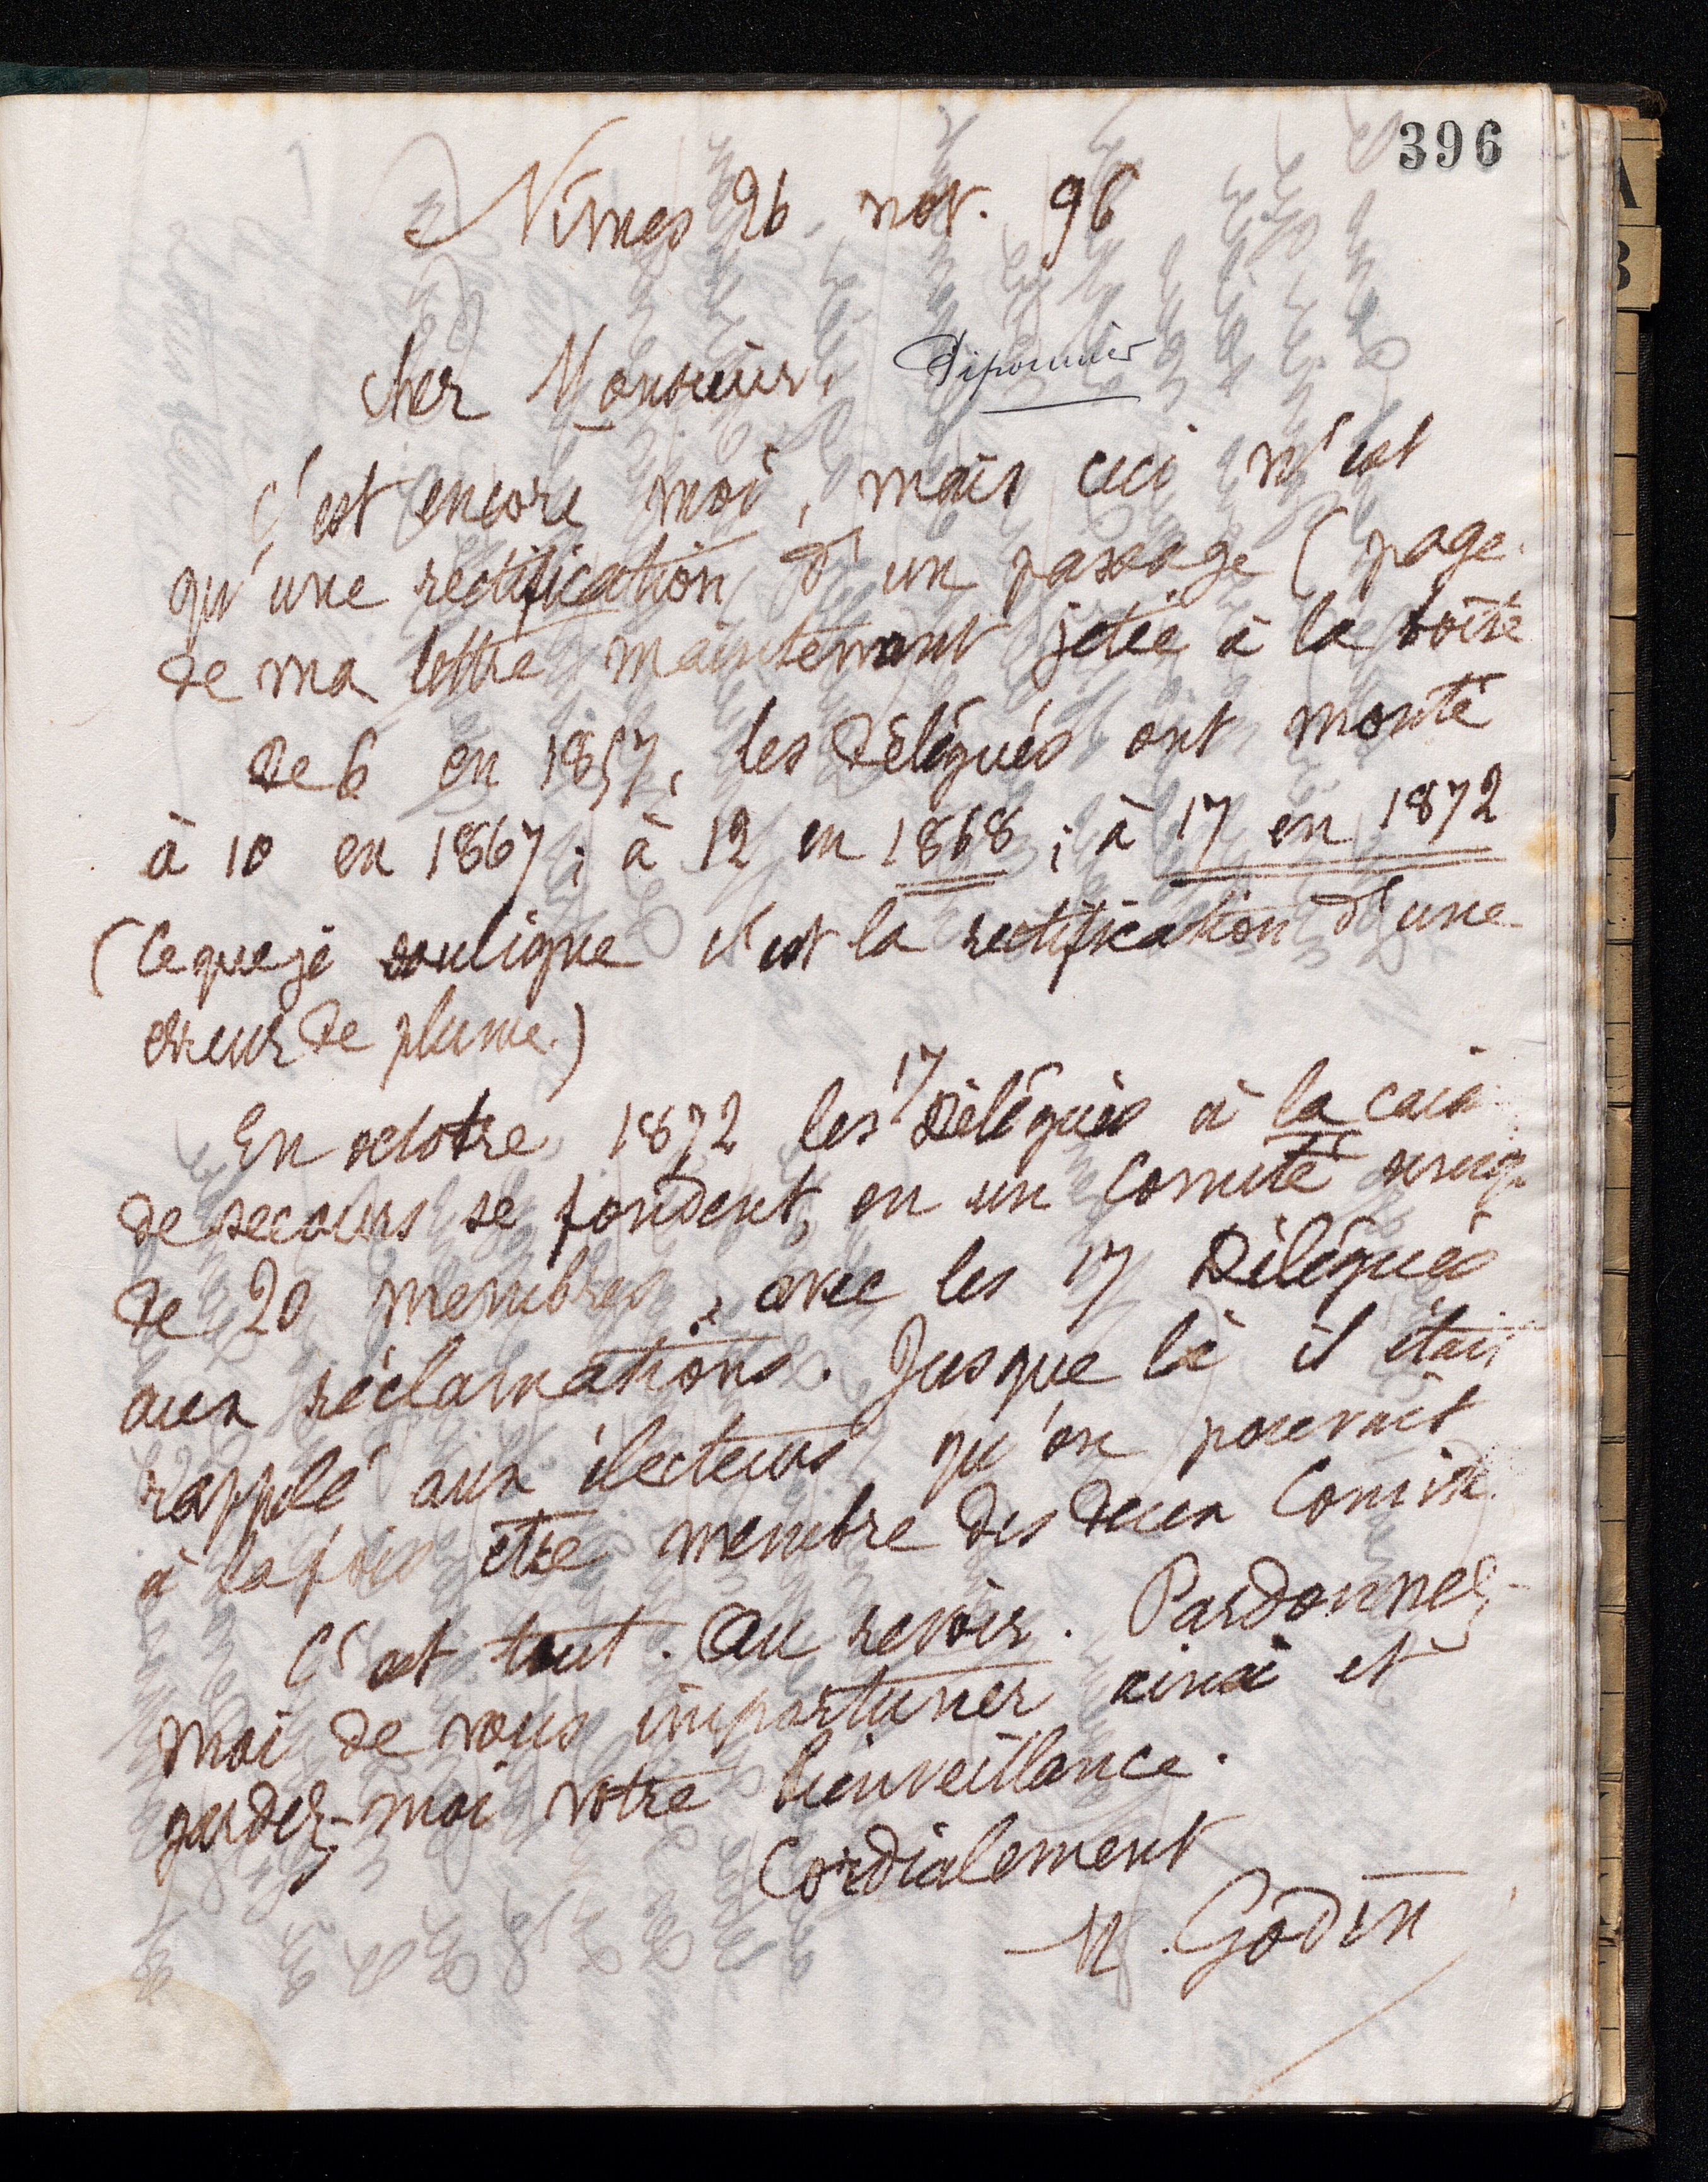 396
Nîmes 26 nov. 96
Cher Monsieur, Sipounier
C'est encore moi, mais ceci n'est
qu'une rectification d'un passage (page
de ma lettre maintenant jetée à la boîte
De 6 en 1857, les Délégués ont monté
à 10 en 1867; à 12 en 1868; à 17 en 1872
(Ce que je souligne c'est la rectification d'une
erreur de plume.)
En octobre 1872 les 17 Délégués à la cais
de secours se fondent, en un Comité uniq
de 20 membres, avec les 17 Délégués
aux réclamations. Jusque là il était
rappelé aux électeurs qu'on pouvait
à la fois être membre des deux Comité
C'est tout. Au revoir. Pardonnez-
moi de vous importuner ainsi et
gardez-moi votre bienveillance.
Cordialement
M. Godin